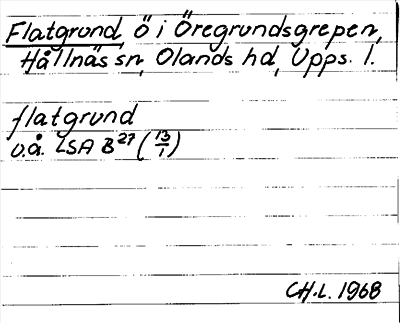 Flatgrund, ö i Öregrundsgrepen,
Hållnäs sn, Olands hd, Upps. l.
flatgrund
o.å. LSA B²⁷ (13/1)
CH.L. 1968